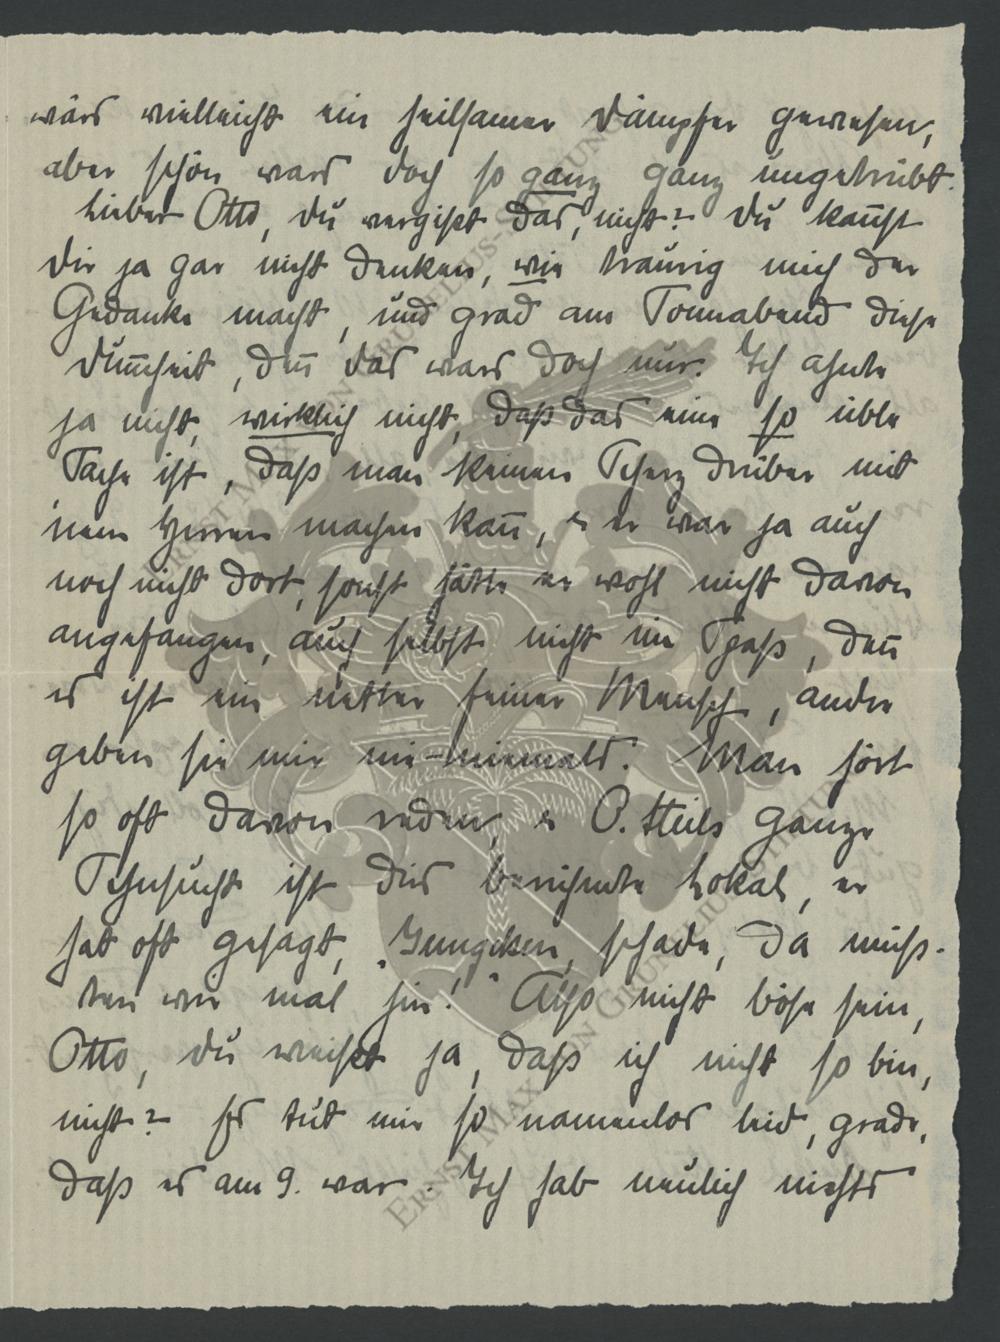 wärs vielleicht ein heilsamer Dämpfer gewesen,
aber schön wars doch so ganz ganz ungetrübt.
Lieber Otto, du vergißt das, nicht? Du kannst
dir ja gar nicht denken, wie traurig mich der
Gedanke macht, und grad am Sonnabend diese
Dummheit, denn das wars doch nur. Ich ahnte
ja nicht, wirklich nicht, daß das eine so üble
Sache ist, daß man keinen Scherz drüber mit
'nem Herren machen kann, & er war ja auch
noch nicht dort, sonst hätte er wohl nicht davon
angefangen, auch selbst nicht im Spaß, denn
es ist ein netter feiner Mensch, andre
geben sie mir nie-niemals. Man hört
so oft davon reden, & O. Heils ganze
Sehnsucht ist dies berühmte Lokal, er
hat oft gesagt, „ schade, da müß-
ten wir mal hin!" Also nicht böse sein,
Otto, du weißt ja, daß ich nicht so bin,
nicht? Es tut mir so namenlos leid, grade,
daß es am 9. war. Ich hab neulich nichts
ERNST MAX VON GRUNELIUS-STIFTUNG
ERNST MAX VON GRUNELIUS-STIFTUNG